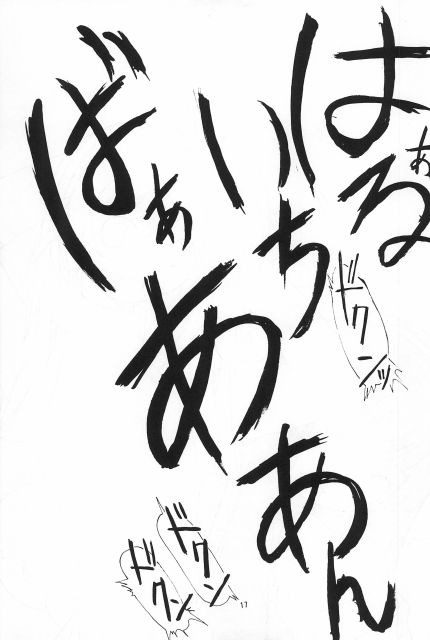 はぁる
いち
ばぁ
ああん
ドクンッ
ドクン
ドクン
17